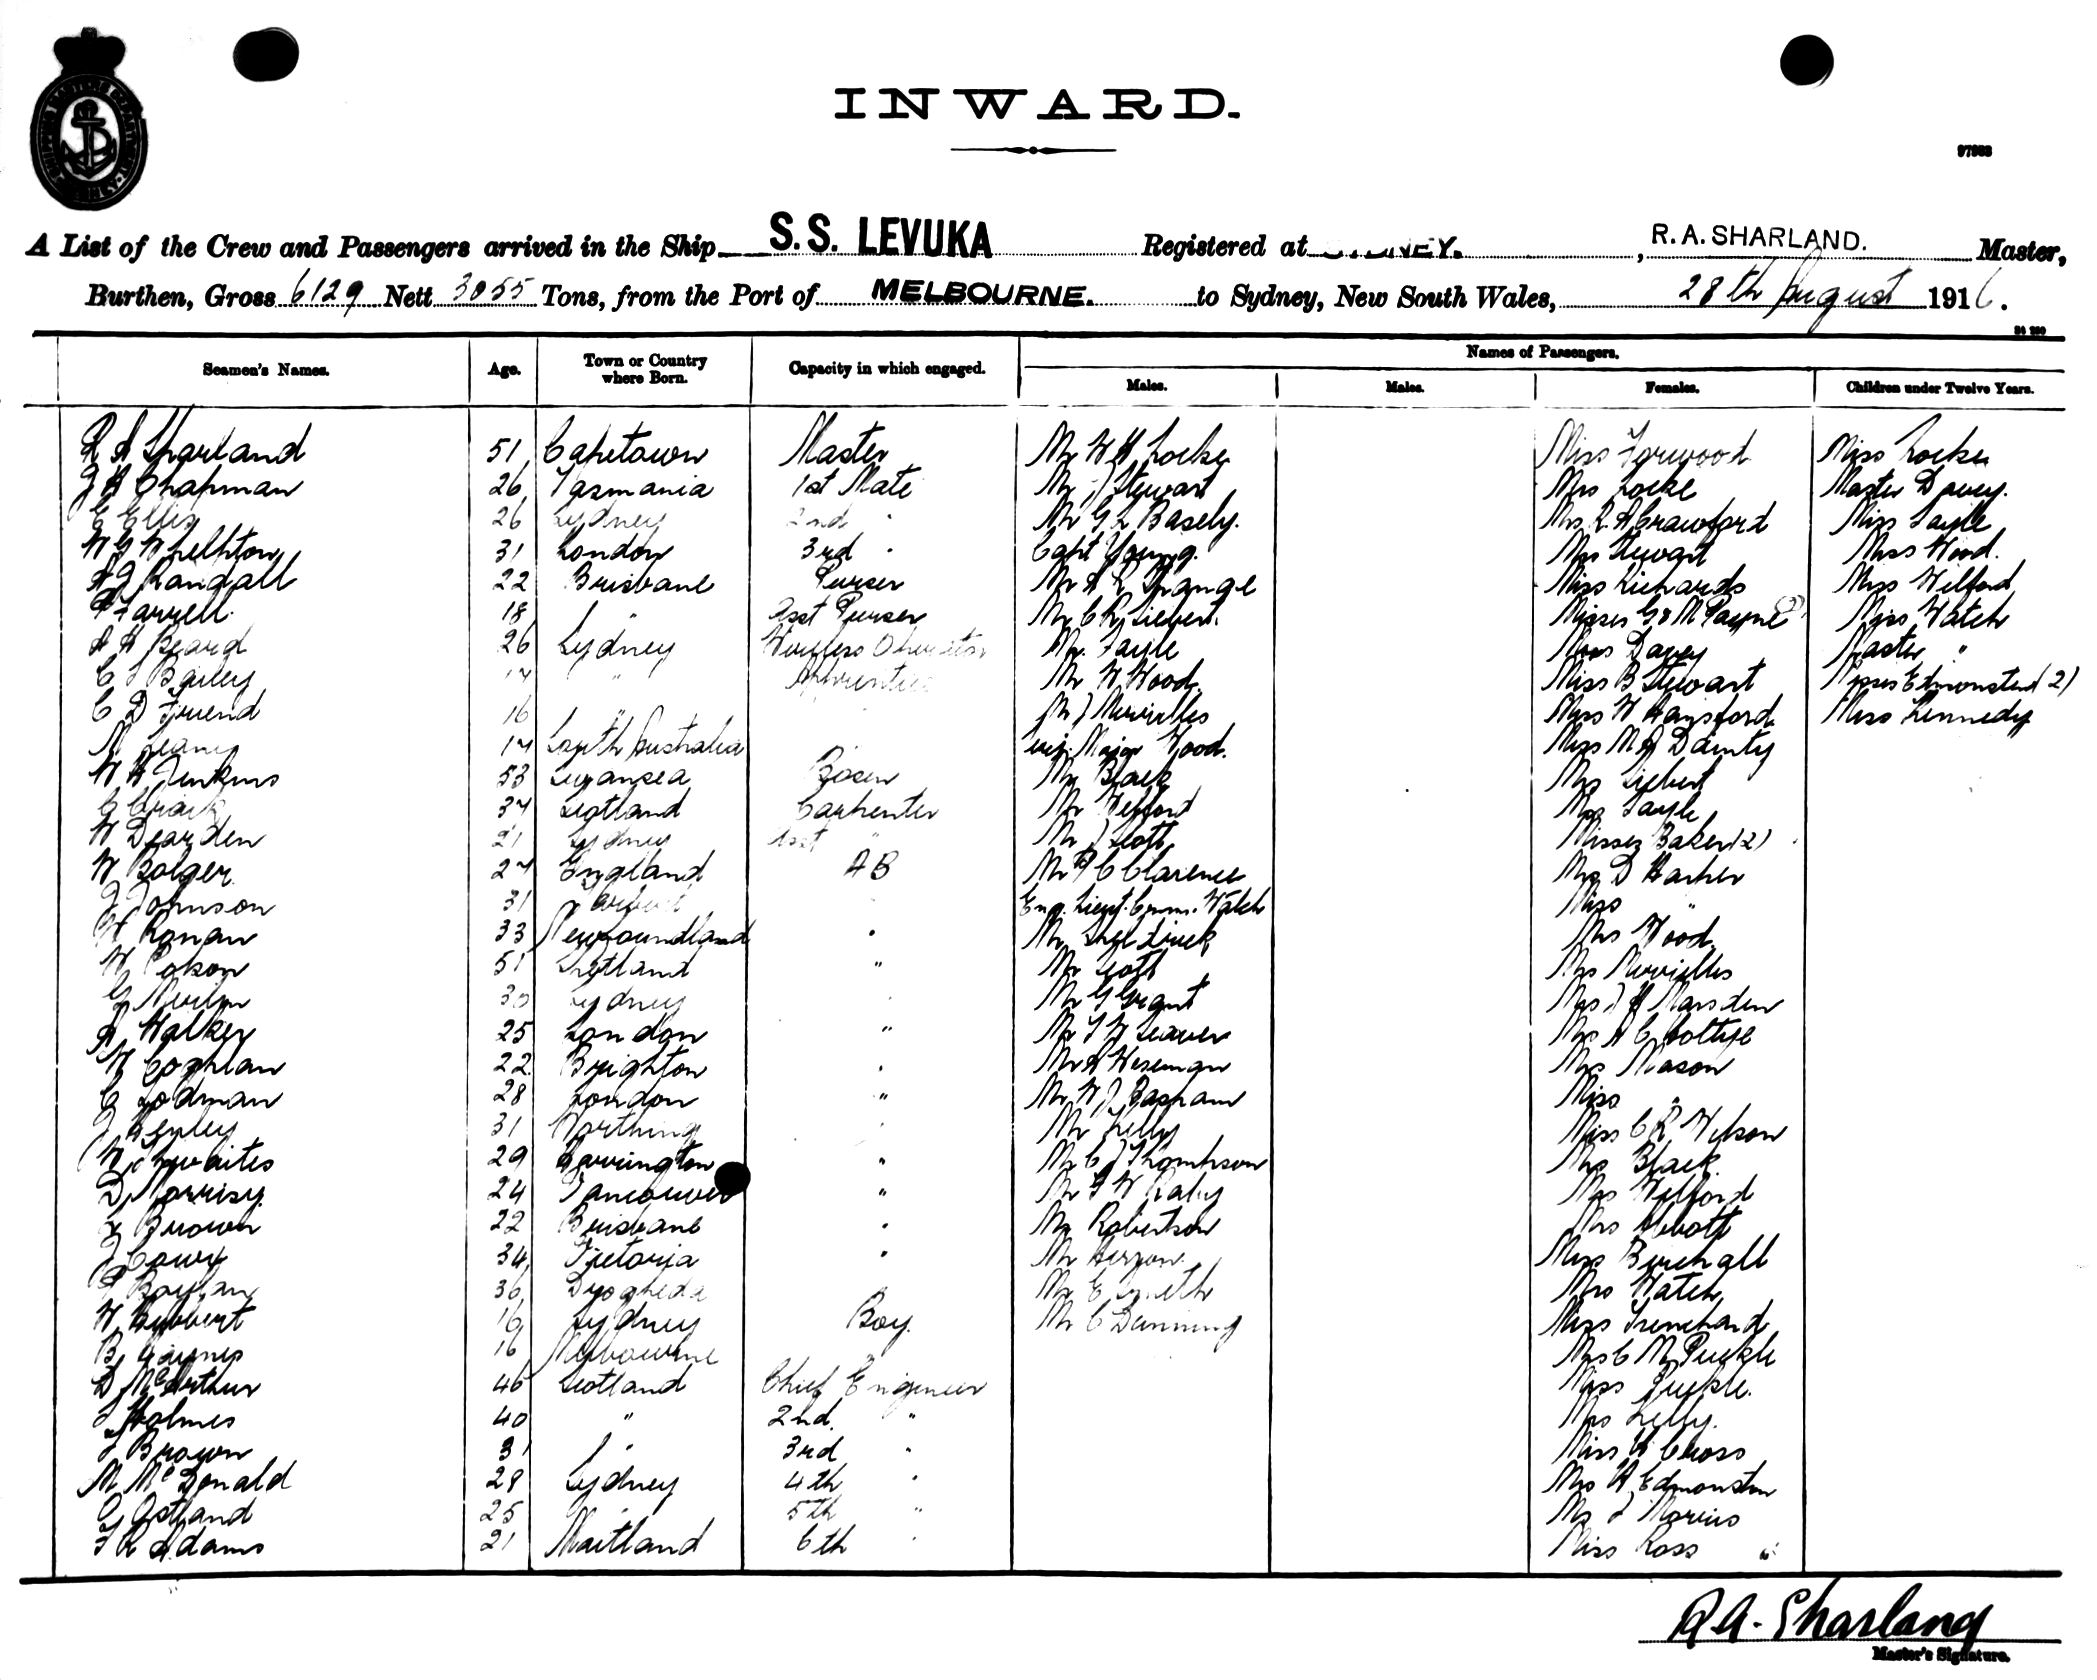 INWARD.
97988
A List of the Crew and Passengers arrived in the Ship S.S. LEVUKA Registered at SYDNEY. , R.A. SHARLAND. Master,
Burthen, Gross 6129 Nett 3055 Tons, from the Port of MELBOURNE. to Sydney, New South Wales, 28th August 1916.
Seamen's Names. Age. Town or Country where Born. Capacity in which engaged. Names of Passengers.
Males. Males. Females. Children under Twelve Years.
R A Sharland 51 Capetown Master Mr W H Locke Miss Forwood Miss Locke
Chapman 26 Tasmania 1st Mate Mr J Stewart Mrs Locke Master Davey.
C Ellis 26 Sydney 2nd " Mr G L Basely. Mrs R A Crawford Miss Sayle
31 London 3rd " Capt Young. Mrs Stewart Miss Wood.
A J Randall 22 Brisbane Purser Mr A R Strange Miss Richards Miss Welford
Farrell 18 " Asst Purser Mr C R Siebert. Misses G & M Payne (2) Miss Hatch
A H Beard 26 Sydney Wireless Operator Mr. Sayle Mrs Davey Master "
C S Bailey 17 " Apprentice Mr W Wood. Miss B Stewart Misses Edmonston (2)
C D Friend 16 " Miss W Hansford Miss Kennedy
17 South Australia Major Wood. Miss M J Dainty
W H Jenkins 53 Swansea Bosun Mr Black Mrs Siebert
37 Scotland Carpenter Mr Welford Mrs Sayle
W Dearden 21 Sydney Asst " Mr J Scott Misses Baker (2)
W Bolger 27 England AB Mr Clarence Mrs D Harper
J Johnson 31 Eng. Lieut. Comm. Hatch Miss "
Ronan 33 Newfoundland " Mr Mrs Wood.
W 51 Scotland " Mr Scott Mrs
G 30 Sydney " Mr G Grant Mrs J H Marsden
A Walker 25 London " Mr Seaver Mrs A C
W Coghlan 22 Brighton " Mr A Wiseman Mrs Mason
C Lodman 28 London " Mr W J Basham Miss "
J Henley 31 Worthing " Mr Kelly Miss C R Wilson
W Thwaites 29 " Mr C J Thompson Mrs Black.
D Morrisy 24 Vancouver " Mr F W Raby Mrs Welford
Brown 22 Brisbane " Mr Robertson Mrs Abbott
J 34 Victoria " Mr Miss Birchall
Boylan 36 Drogheda Mr E Smith Mrs Hatch
W Hubbert 16 Sydney Boy. Mr C Dunning Miss Trenchard
B 16 Melbourne Mrs C M Puckle
D McArthur 46 Scotland Chief Engineer Miss Puckle.
Holmes 40 " 2nd " Mrs Kelly.
J Brown 31 " 3rd " Miss H Cross
M McDonald 28 Sydney 4th " Mrs A Edmonston
25 " 5th " J Morris
Adams 21 Maitland 6th " Miss Ross
R A. Sharland
Master's Signature.